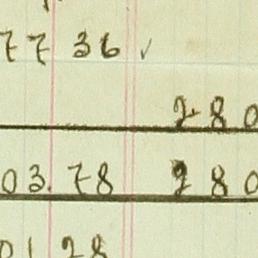 77 36 ✓
280
03.78 280
01 28